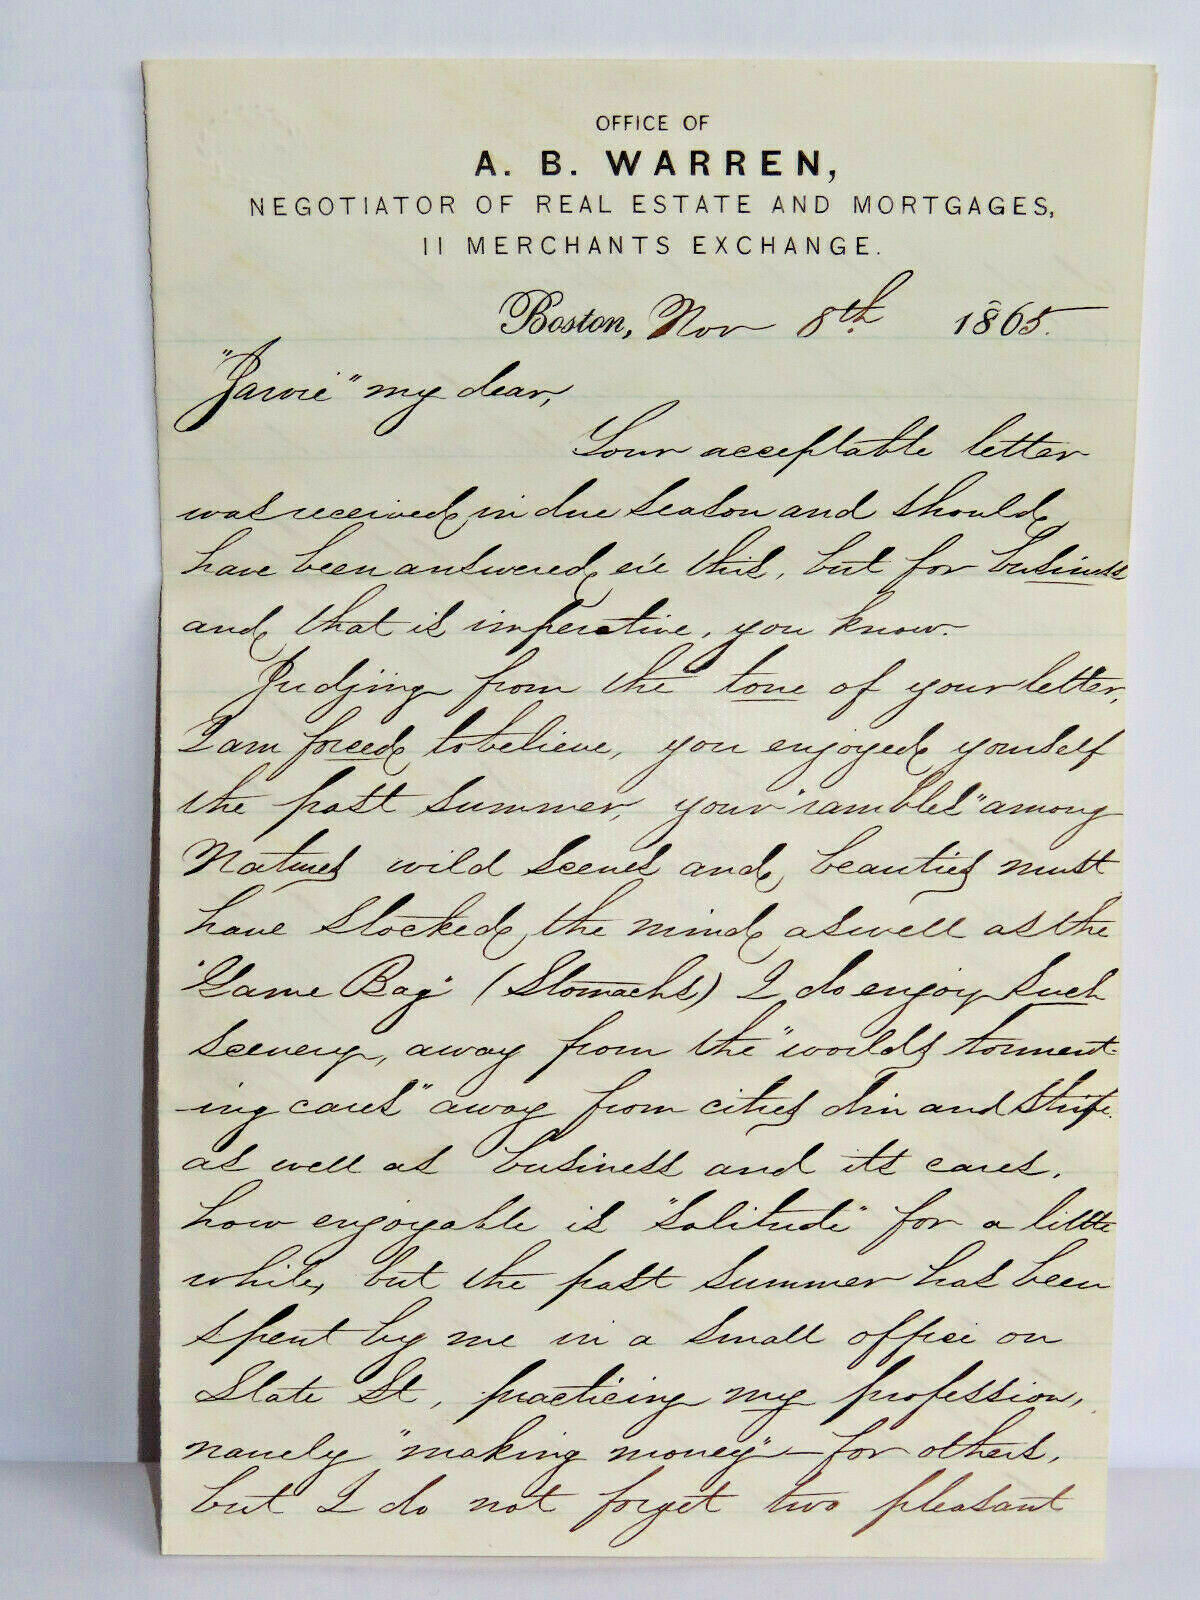 OFFICE OF
A. B. WARREN,
NEGOTIATOR OF REAL ESTATE AND MORTGAGES,
11 MERCHANTS EXCHANGE.
Boston, Nov 8th 1865.
"Jarvie" my dear,
Your acceptable letter
was received in due season and should
have been answered e're this, but for business
and that is imperative, you know.
Judjing from the tone of your letter,
I am forced to believe, you enjoyed yourself
the past summer, your "rambles" among
Natures wild scenes and beauties must
have stocked the mind as well as the
"Game Bag" (Stomachs) I do enjoy such
scenery, away from the "worlds torment-
-ing cares" away from cities din and strife.
as well as business and its cares.
how enjoyable is "solitude" for a little
while, but the past summer has been
spent by me in a small office on
State St, practicing my profession,
namely "making money" — for others,
but I do not forget two pleasant